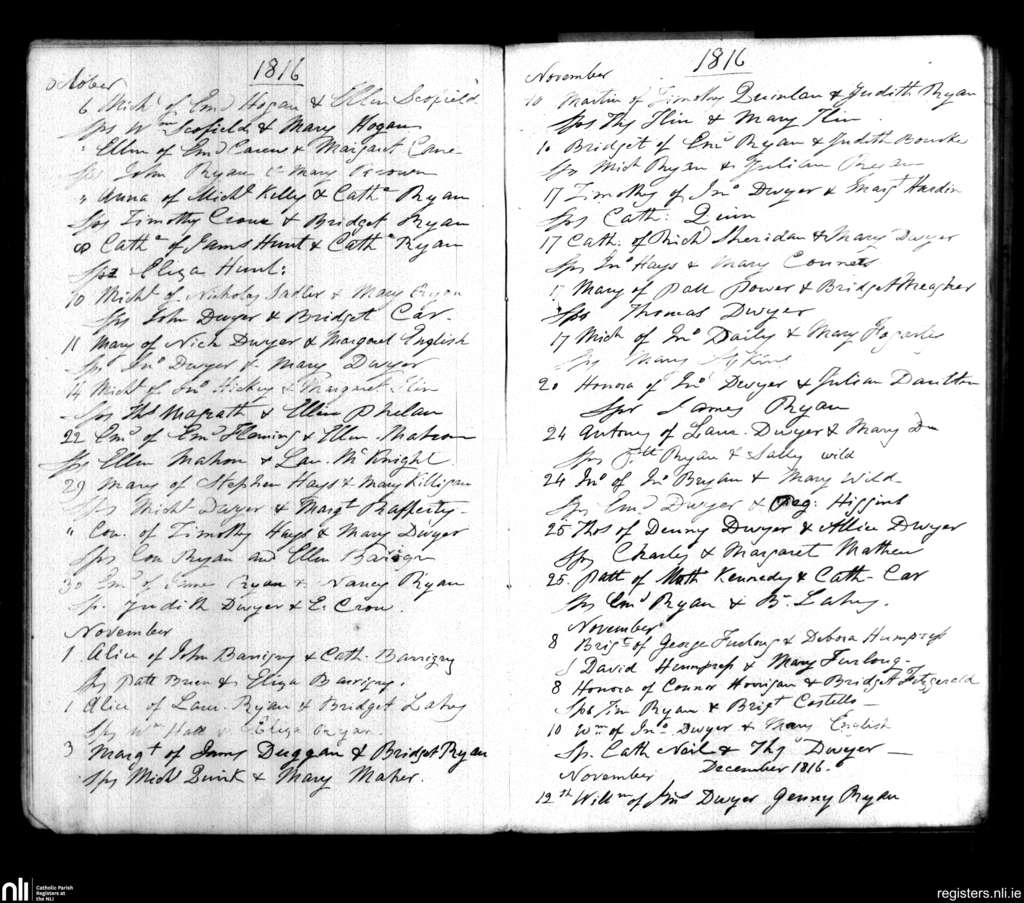 1816
October
6 Mich.l of Em.d Hogan & Ellen Scofield
Sprs W.m Scofield & Mary Hogan
" Ellen of Em.d Carew & Margaret Cane
Sps John Ryan & Mary
" Anna of Mich.l Kelly & Cath.e Ryan
Sps Timothy Crowe & Bridget Ryan
8 Cath.e of James Hunt & Cath.e Ryan
Sps Eliza Hunt:
10 Mich.l of Nicholas Sadler & Mary Ryan
Sps John Dwyer & Bridget Car.
11 Mary of Nich Dwyer & Margaret English
Sps Jn.o Dwyer & Mary Dwyer
14 Mich.l of Jn.o Hickey & Margaret
Sps Th.s Magrath & Ellen Phelan
22 Em.d of Em.d Fleming & Ellen Mahon
Sps Ellen Mahon & Lau. McKnight
29 Mary of Stephen Hays & Mary Killigan
Sps Mich.l Dwyer & Marg.t Rafferty-
" Con. of Timothy Hays & Mary Dwyer
Sps Con Ryan and Ellen
30 of James Ryan & Nancy Ryan
Sp. Judith Dwyer & E. Crow.
November
1 Alice of John Barrigry & Cath. Barrigry
Sps Patt Brien & Eliza Barrigry.
1 Alice of Laur. Ryan & Bridget Lahy
Sps W.m Hall & Eliza Ryan.
3 Marg.t of James Duggan & Bridget Ryan
Sps Mich.l Quirk & Mary Maher.
1816
November
10 Martin of Timothy Quinlan & Judith Ryan
Sps Th.s Flin & Mary Flin
10 Bridget of Em.d Ryan & Judith Bourke
Sps Mich Ryan & Julian
17 Timothy of Jn.o Dwyer & Marg.t Hardin
Sps Cath: Quin
17 Cath: of Rich.d Sheridan & Mary Dwyer
Sps Jn.o Hays & Mary
Mary of Patt Power & Bridget Meagher
Sps Thomas Dwyer
17 Mich of Jn.o Daily & Mary Fogarty
Sps Mary
20 Honora of Jn.o Dwyer & Julian Daulton
Sps James Ryan
24 Antony of Laur. Dwyer & Mary
Sps Ryan & Sally Wild
24 Jn.o of Jn.o Bryan & Mary Wild-
Sps Em.d Dwyer & Peg: Higgins
25 Thos of Denny Dwyer & Allice Dwyer
Sps Charles & Margaret Mathew
25. Patt of Math Kennedy & Cath- Car
Sps Em.d Ryan & B. Lahy.
November
8 Brig.t of George Furlong & Debora Humpress
S David Humpress & Mary Furlong-
8 Honora of Connor Horrigan & Bridget Fitzgerald
Sps Tim Ryan & Brig.t Costello-
10 W.m of Jn.o Dwyer & Mary English
Sp. Cath Nail & Th.s Dwyer-
November December 1816.
12th Will.m of Jn.o Dwyer Jenny Ryan
nli
Catholic Parish
Registers at
the NLI
registers.nli.ie